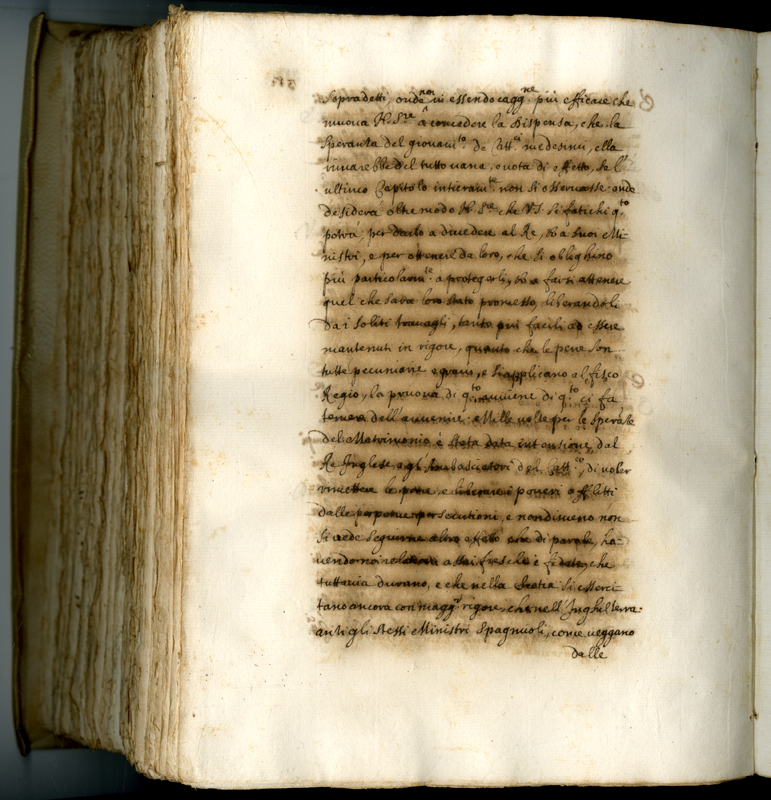 Sopradetti, onde non vi essendo cagg.ne più efficace che
muova N. S.re a concedere la dispensa, che la
speranza del giovam.to de Catt.ci medesimi, ella
rimarebbe del tutto vana, e vota di effetto, se l'
ultimo Capitolo intieram.te non si osservasse. onde
desidera oltre modo N. S.re che V.S. si fatichi q.to
potrà, per darlo a divedere al Re, et a suoi Mi-
nistri, e per ottenere da loro, che si oblighino
più particolarm.te a protegerli, et a farsi attenere
quel che sarà loro stato promesso, liberandoli
da i soliti travagli, tanto più facili ad essere
mantenuti in rigore, quanto che le pene son
tutte pecuniarie e gravi, e si applicano al fisco
Regio, la pruova di q.to avviene di q.to ci fa
temere dell'avvenire. Mille volte per le Speranze
del Matrimonio è stata data intentione dal
Re Inglese e gli Ambasciatori del Catt.co, di voler
rimettere le pene, e liberare i poveri afflitti
dalle perpetue persecutioni, e nondimeno non
si vede seguirne altro effetto che di parole, ha-
vendo noi relationi assai fresche e fidate, che
tuttavia durano, e che nella Scotia si esserci-
tano ancora con magg.r rigore, che nell'Inghilterra.
anzi gli stessi Ministri Spagnuoli, come veggano
dalle